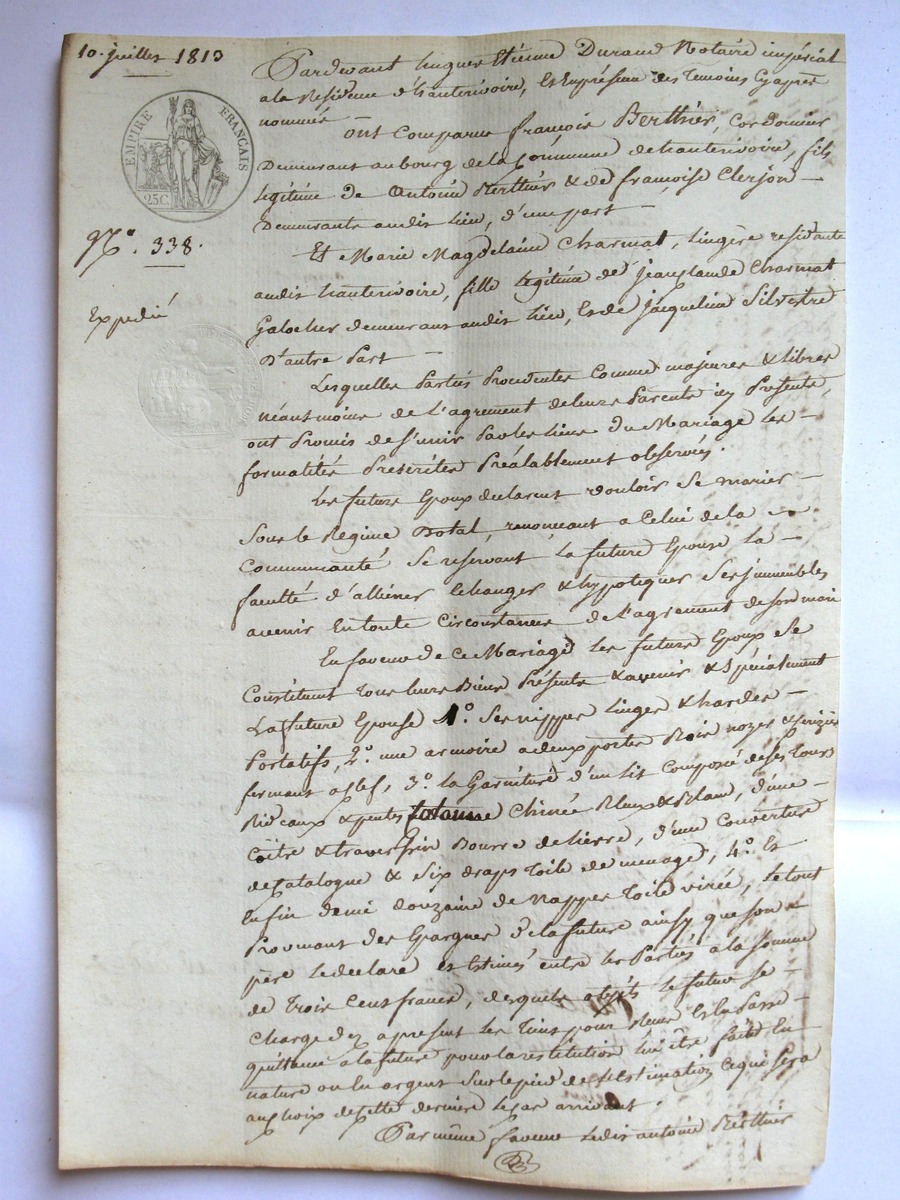 10. juillet 1813
EMPIRE FRANÇAIS
25C.
N.º 338.
Expedié
Pardevant hugues Etienne Durand Notaire impérial
a la Residence d'hauterivoire, Et En présence des Temoins Cy après
nommés
ont comparu françois Berthier, Cordonnier
Demeurant au bourg de la Commune de hauterivoire, fils
légitime de Antoine Berthier & de francoise Clerjon
Demeurants audit lieu, d'une part
Et Marie Magdelaine Charmat, lingère residante
audit hauterivoire, fille légitime de Jean Claude Charmat
Galocher demeurant audit Lieu, Et de jacqueline Silvestre
D'autre part
Lesquelles Parties Procedentes Comme majeures & libres
néantmoins de l'agrement de leurs Parents icy Présents,
ont Promis de s'unir Par les liens du Mariage les
formalités Prescrites Préalablement observées.
Les futurs Epoux declarent vouloir se marier
Sous le Régime Dotal, renoncant a Celui de la
Communauté se reservant la future Epouse la
faculté d'alliéner Echanger & hypotéquer Ses immeubles
avenir En toute Circonstances de l'agrement de son mari
En faveur de ce Mariage les futurs Epoux se
Constituent tous leurs Biens Présents & avenir & spécialement
La future Epouse 1º. Ses nippes linges & hardes
Portatifs, 2º. une armoire a deux portes Bois noyer & serizier
fermant a clef, 3º. la Garniture d'un lit Composé de ses tours
Rideaux & pentes Chinée Bleux & Blanc, d'une
Coître & traversin Bourre de lierre, d'une Couverture
de Catalogne & Six draps toile de menage, 4º. Et
Enfin demi douzaine de Nappes toile virée, le tout
Provenant des Epargnes de la future ainsy que son
père le declare et Estimés entre les Parties a la somme
de Trois Cents francs, desquels objets le futur se
Charge dez a present les tient pour Reçus Et En Passe
quittance a la future pour la restitution lui être faite En
nature ou En argent Sur le pied de l'Estimation Ce qui sera
au choix de cette derniere le cas arrivant.
Par même faveur ledit antoine Berthier